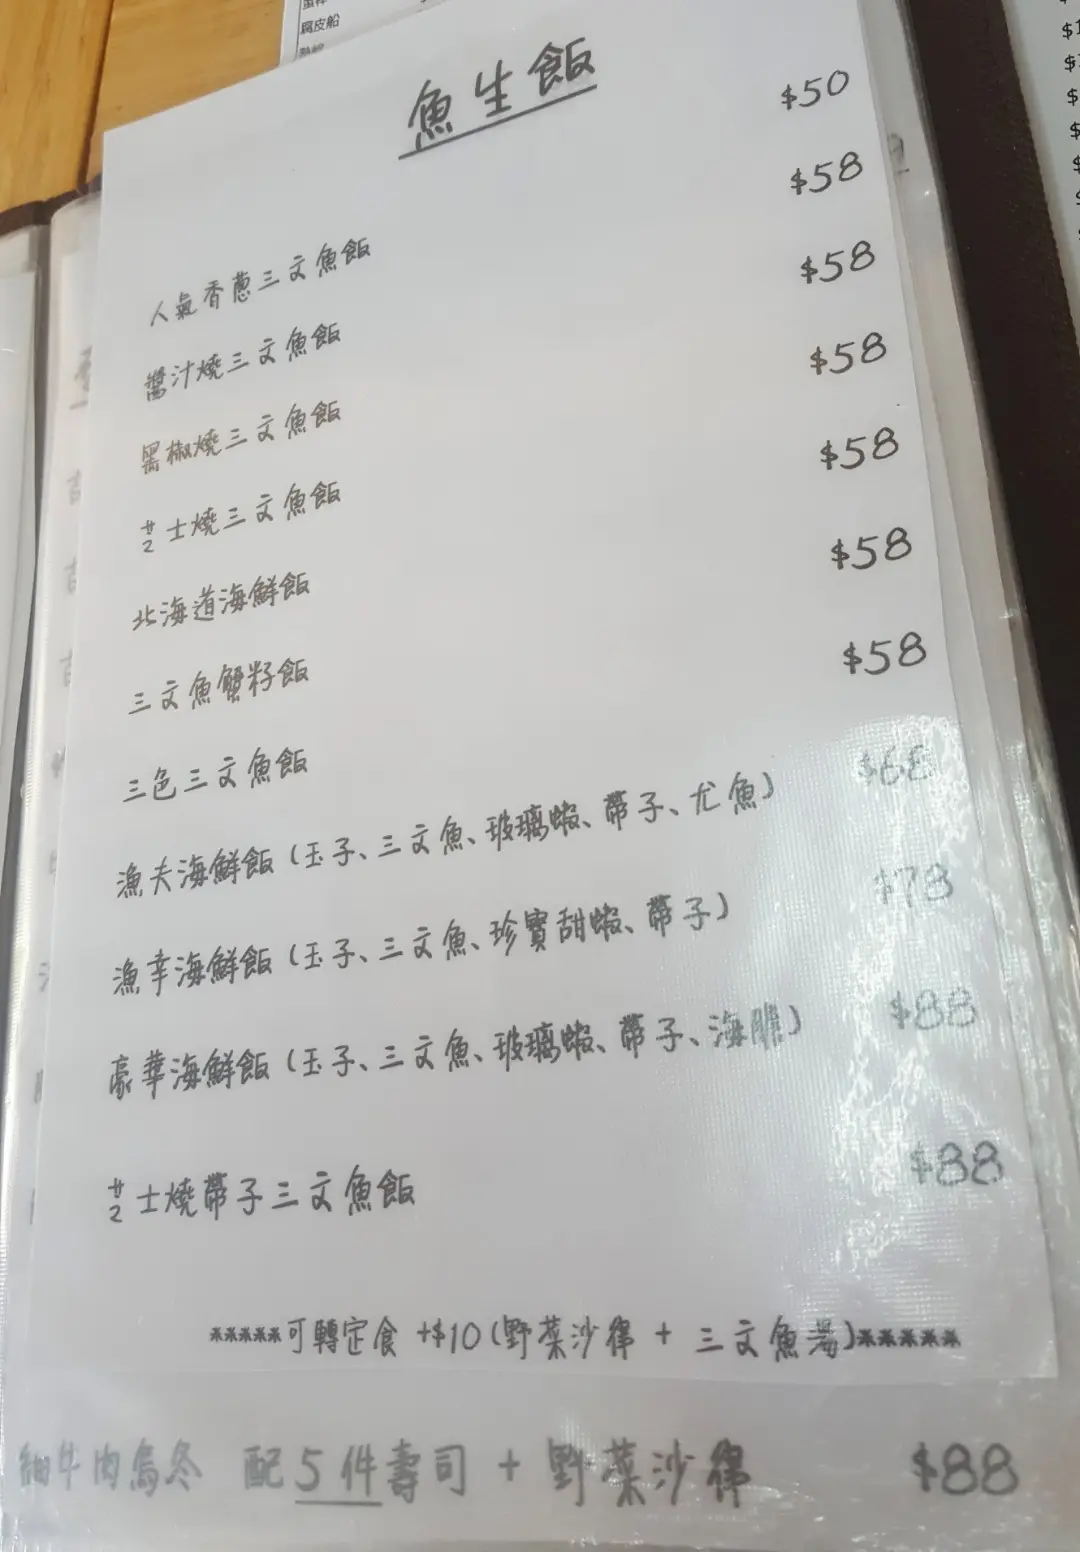 腐皮船
魚生飯
人氣香蔥三文魚飯 $50
醬汁燒三文魚飯 $58
黑椒燒三文魚飯 $58
芝士燒三文魚飯 $58
北海道海鮮飯 $58
三文魚蟹籽飯 $58
三色三文魚飯 $58
漁夫海鮮飯(玉子、三文魚、玻璃蝦、帶子、尤魚) $68
漁幸海鮮飯(玉子、三文魚、珍寶甜蝦、帶子) $78
豪華海鮮飯(玉子、三文魚、玻璃蝦、帶子、海膽) $88
芝士燒帶子三文魚飯 $88
*****可轉定食 +$10(野菜沙律 + 三文魚湯)*****
細牛肉烏冬 配5件壽司 + 野菜沙律 $88